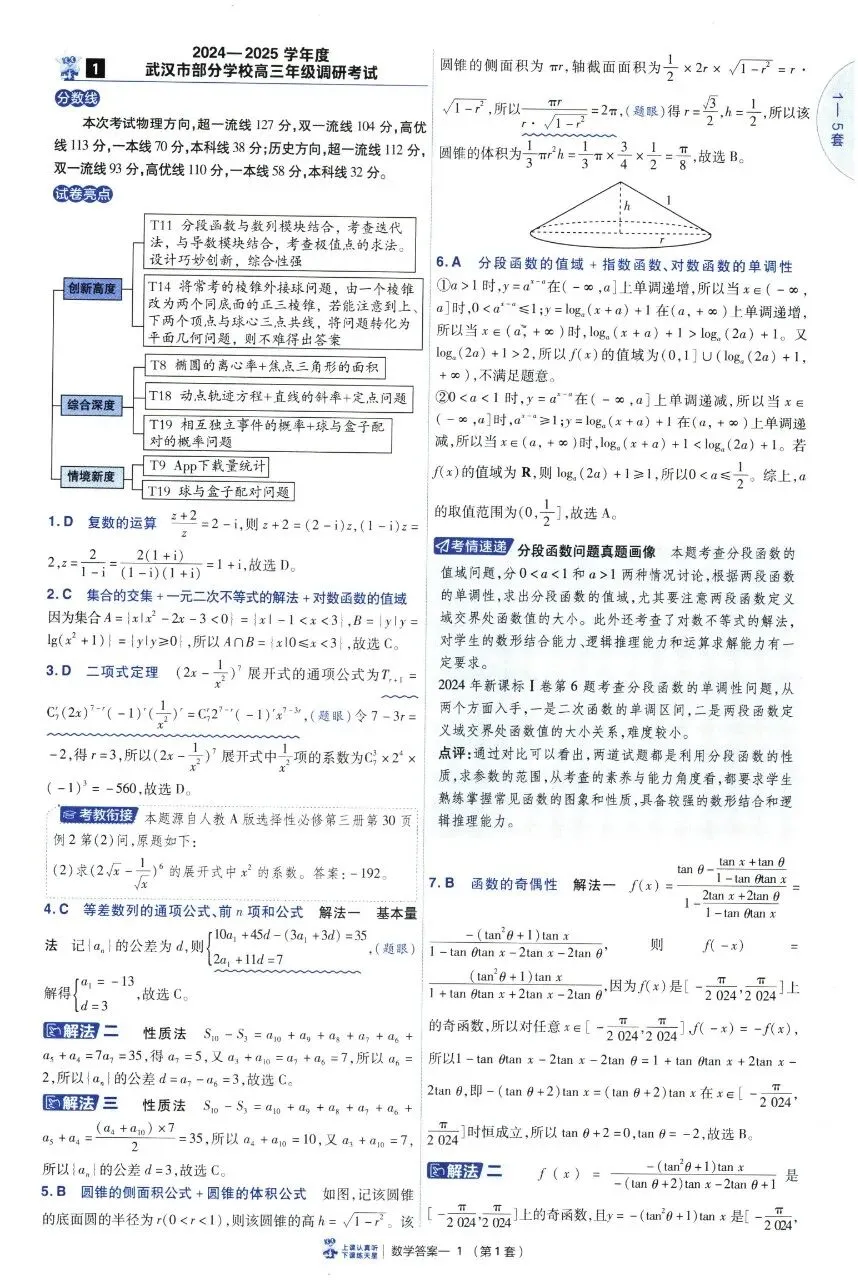 1
2024—2025 学年度
武汉市部分学校高三年级调研考试
分数线
本次考试物理方向,超一流线 127 分,双一流线 104 分,高优
线 113 分,一本线 70 分,本科线 38 分;历史方向,超一流线 112 分,
双一流线 93 分,高优线 110 分,一本线 58 分,本科线 32 分。
试卷亮点
创新高度
T11 分段函数与数列模块结合，考查迭代
法，与导数模块结合，考查极值点的求法。
设计巧妙创新，综合性强
T14 将常考的棱锥外接球问题，由一个棱锥
改为两个同底面的正三棱锥，若能注意到上、
下两个顶点与球心三点共线，将问题转化为
平面几何问题，则不难得出答案
综合深度
T8 椭圆的离心率+焦点三角形的面积
T18 动点轨迹方程+直线的斜率+定点问题
T19 相互独立事件的概率+球与盒子配
对的概率问题
情境新度
T9 App下载量统计
T19 球与盒子配对问题
1. D 复数的运算 (z+2)/z = 2 − i,则 z + 2 = (2 − i)z,(1 − i)z =
2,z = 2/(1−i) = 2(1+i)/((1−i)(1+i)) = 1 + i,故选 D。
2. C 集合的交集 + 一元二次不等式的解法 + 对数函数的值域
因为集合 A = {x|x² − 2x − 3 < 0} = {x| −1 < x < 3},B = {y|y =
lg(x² + 1)} = {y|y ≥ 0},所以 A∩B = {x|0 ≤ x < 3},故选 C。
3. D 二项式定理 (2x − 1/x²)⁷ 展开式的通项公式为 T_{r+1} =
C₇ʳ(2x)^{7−r}(−1)ʳ(1/x²)ʳ = C₇ʳ2^{7−r}(−1)ʳx^{7−3r},(题眼)令 7 − 3r =
−2,得 r = 3,所以(2x − 1/x²)⁷ 展开式中 1/x² 项的系数为 C₇³ × 2⁴ ×
(−1)³ = −560,故选 D。
考教衔接 本题源自人教 A 版选择性必修第三册第 30 页
例 2 第(2)问,原题如下:
(2)求(2√x − 1/√x)⁶ 的展开式中 x² 的系数。答案: −192。
4. C 等差数列的通项公式、前 n 项和公式 解法一 基本量
法 记{aₙ}的公差为 d,则{10a₁ + 45d − (3a₁ + 3d) = 35 2a₁ + 11d = 7,(题眼)
解得{a₁ = −13 d = 3,故选 C。
解法 二 性质法 S₁₀ − S₃ = a₁₀ + a₉ + a₈ + a₇ + a₆ +
a₅ + a₄ = 7a₇ = 35,得 a₇ = 5,又 a₃ + a₁₀ = a₇ + a₆ = 7,所以 a₆ =
2,所以{aₙ}的公差 d = a₇ − a₆ = 3,故选 C。
解法 三 性质法 S₁₀ − S₃ = a₁₀ + a₉ + a₈ + a₇ + a₆ +
a₅ + a₄ = (a₄ + a₁₀) × 7/2 = 35,所以 a₄ + a₁₀ = 10,又 a₃ + a₁₀ = 7,
所以{aₙ}的公差 d = 3,故选 C。
5. B 圆锥的侧面积公式 + 圆锥的体积公式 如图,记该圆锥
的底面圆的半径为 r(0 < r < 1),则该圆锥的高 h = √(1 − r²)。该
圆锥的侧面积为 πr,轴截面面积为 1/2 × 2r × √(1 − r²) = r ·
√(1 − r²),所以 πr/(r · √(1 − r²)) = 2π,(题眼)得 r = √3/2,h = 1/2,所以该
圆锥的体积为 1/3 πr²h = 1/3 π × 3/4 × 1/2 = π/8,故选 B。
h
1
r
6. A 分段函数的值域 + 指数函数、对数函数的单调性
①a > 1 时,y = a^{x−a} 在(−∞,a]上单调递增,所以当 x∈(−∞,
a]时,0 < a^{x−a} ≤ 1;y = logₐ(x + a) + 1 在(a, +∞)上单调递增,
所以当 x∈(a, +∞)时,logₐ(x + a) + 1 > logₐ(2a) + 1。又
logₐ(2a) + 1 > 2,所以 f(x)的值域为(0,1]∪(logₐ(2a) + 1,
+∞),不满足题意。
②0 < a < 1 时,y = a^{x−a} 在(−∞,a]上单调递减,所以当 x∈
(−∞,a]时,a^{x−a} ≥ 1;y = logₐ(x + a) + 1 在(a, +∞)上单调递
减,所以当 x∈(a, +∞)时,logₐ(x + a) + 1 < logₐ(2a) + 1。若
f(x)的值域为 R,则 logₐ(2a) + 1 ≥ 1,所以0 < a ≤ 1/2。综上,a
的取值范围为(0, 1/2],故选 A。
考情速递 分段函数问题真题画像 本题考查分段函数的
值域问题,分 0 < a < 1 和 a > 1 两种情况讨论,根据两段函数
的单调性,求出分段函数的值域,尤其要注意两段函数定义
域交界处函数值的大小。此外还考查了对数不等式的解法,
对学生的数形结合能力、逻辑推理能力和运算求解能力有一
定要求。
2024 年新课标 Ⅰ 卷第 6 题考查分段函数的单调性问题,从
两个方面入手,一是二次函数的单调区间,二是两段函数定
义域交界处函数值的大小关系,难度较小。
点评:通过对比可以看出,两道试题都是利用分段函数的性
质,求参数的范围,从考查的素养与能力角度看,都要求学生
熟练掌握常见函数的图象和性质,具备较强的数形结合和逻
辑推理能力。
7. B 函数的奇偶性 解法一 f(x) = (tan θ − (tan x + tan θ)/(1 − tan θtan x))/(1 − (2tan x + 2tan θ)/(1 − tan θtan x)) =
−(tan²θ + 1)tan x/(1 − tan θtan x − 2tan x − 2tan θ), 则 f(−x) =
(tan²θ + 1)tan x/(1 + tan θtan x + 2tan x − 2tan θ),因为 f(x)是[−π/2 024, π/2 024]上
的奇函数,所以对任意 x∈[−π/2 024, π/2 024],f(−x) = −f(x),
所以1 − tan θtan x − 2tan x − 2tan θ = 1 + tan θtan x + 2tan x −
2tan θ,即 −(tan θ + 2)tan x = (tan θ + 2)tan x 在 x∈[−π/2 024,
π/2 024]时恒成立,所以 tan θ + 2 = 0,tan θ = −2,故选 B。
解法 二 f(x) = −(tan²θ + 1)tan x/(−(tan θ + 2)tan x − 2tan θ + 1) 是
[−π/2 024, π/2 024]上的奇函数,且 y = −(tan²θ + 1)tan x 是[−π/2 024,
1—5套
上课认真听
下课练天星
数学答案— 1 (第 1 套)